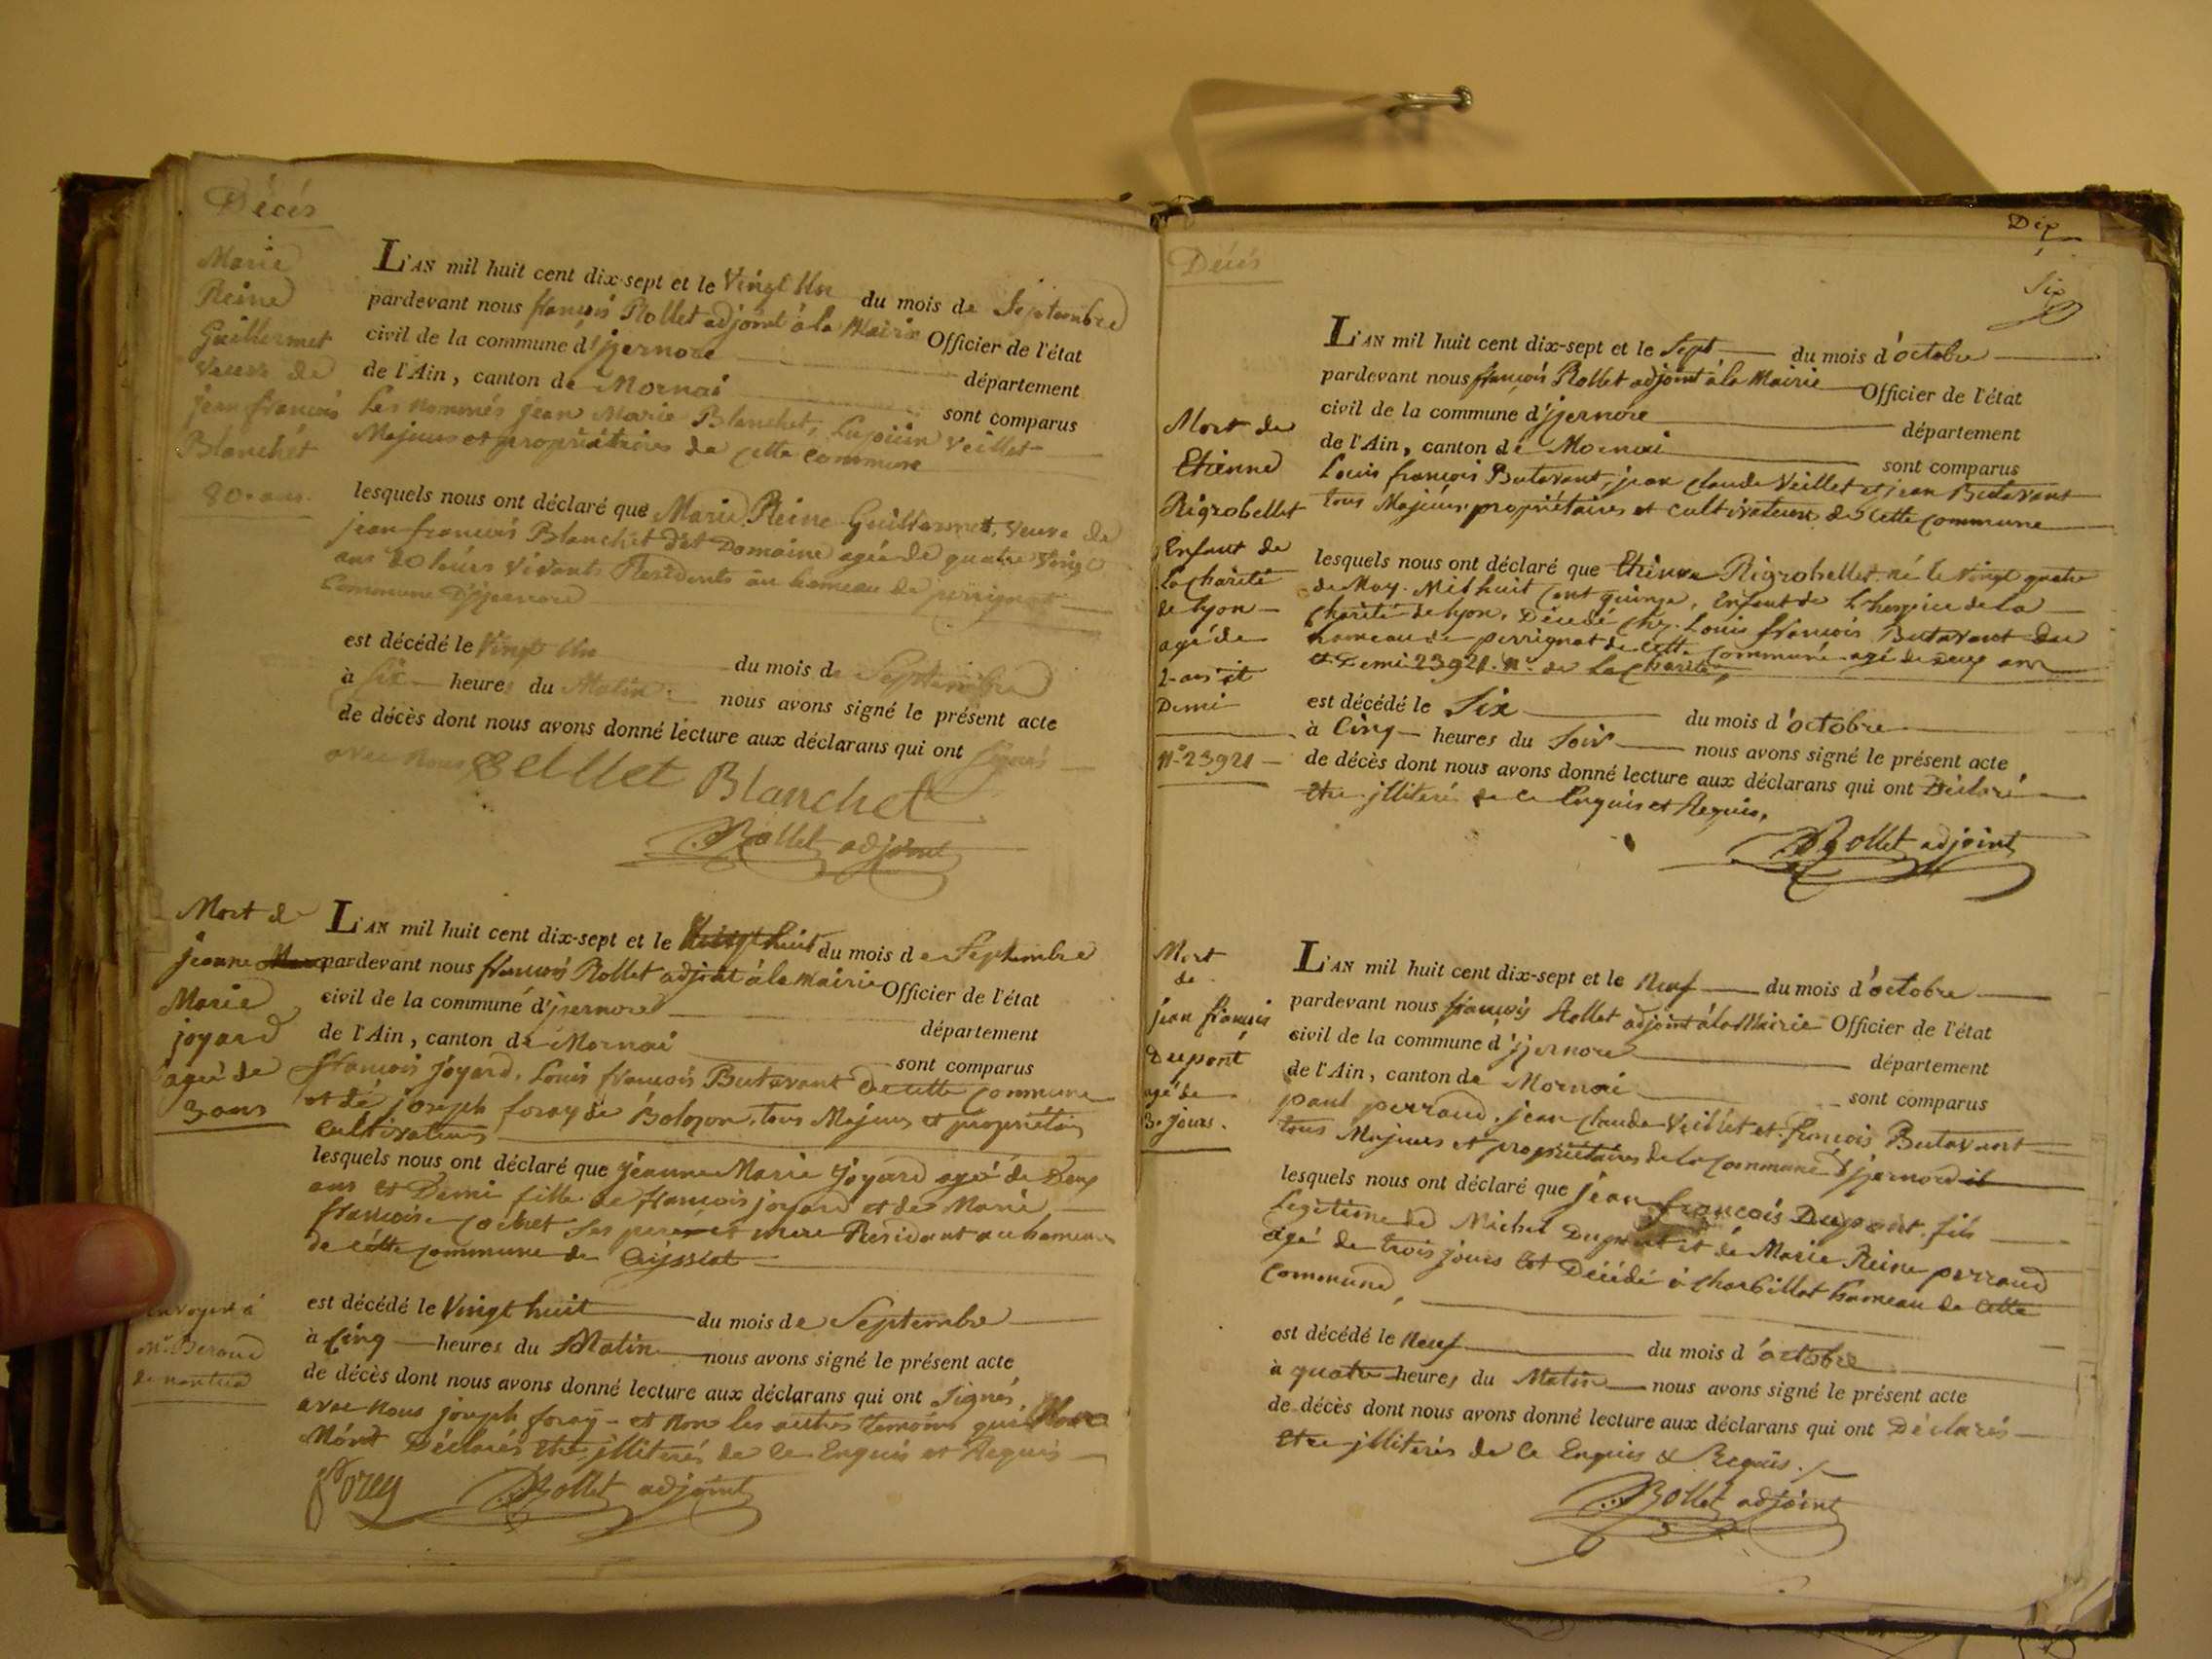 Décès
Marie
Reine
Guillermet
Veuve de
jean françois
Blanchet
80. ans.
L'AN mil huit cent dix-sept et le Vingt Un du mois de Septembre
pardevant nous françois Rollet adjoint à la Mairie Officier de l'état
civil de la commune d'jzernore département
de l'Ain, canton de Mornai sont comparus
Les nommés jean Marie Blanchet, Veillet
Majeurs et propriétaires de cette commune
lesquels nous ont déclaré que Marie Reine Guillermet, veuve de
jean françois Blanchet dit Domaine agée de quatre Vingt
ans 80 Vivants Residents au hameau de perrignat
Commune D'jzernore
est décédé le Vingt Un du mois de Septembre
à Six heures du Matin nous avons signé le présent acte
de décès dont nous avons donné lecture aux déclarans qui ont signés
avec nous
Veillet Blanchet
Rollet adjoint
Mort de
jeanne
Marie
joyard
ageé de
3 ans
envoyer à
Mr. Beraud
de nantua
L'AN mil huit cent dix-sept et le Vingt huit du mois de Septembre
pardevant nous françois Rollet adjoint à la Mairie Officier de l'état
civil de la commune d'jzernore département
de l'Ain, canton de Mornai sont comparus
françois joyard, Louis françois Butavant de cette commune
et de joseph foray de Bolozon, tous Majeurs et propriétaires
cultivateurs
lesquels nous ont déclaré que jeanne Marie joyard agé de Deux
ans et Demi fille de françois joyard et de Marie
françoise Cochet Ses pere et mere Residant au hameau
de cette commune de Ceyssiat
est décédé le Vingt huit du mois de Septembre
à Cinq heures du Matin nous avons signé le présent acte
de décès dont nous avons donné lecture aux déclarans qui ont Signés
avec nous joseph foray et non les autres temoins qui
M'ont Déclarés etre jlliterés de ce Enquis et Requis
forey Rollet adjoint
Dix
Six
Décès
Mort de
Etienne
Rigrobellet
Enfant de
La Charité
de Lyon
agé de
2 ans et
Demi
No. 23921
L'AN mil huit cent dix-sept et le Sept du mois d'octobre
pardevant nous françois Rollet adjoint à la Mairie Officier de l'état
civil de la commune d'jzernore département
de l'Ain, canton de Mornai sont comparus
Louis françois Butavant, jean claude Veillet et jean Butavant
tous Majeurs propriétaires et cultivateurs de cette commune
lesquels nous ont déclaré que Etienne Rigrobellet né le vingt quatre
de May. Mil huit Cent quinze, Enfant de L'hospice de La
Charité de Lyon, Décédé chez Louis françois Butavant du
hameau de perrignat de cette Commune agé de deux ans
et Demi 23921. No. de La Charité,
est décédé le Six du mois d'octobre
à Cinq heures du Soir nous avons signé le présent acte
de décès dont nous avons donné lecture aux déclarans qui ont Déclaré
etre jlliterés de ce Enquis et Requis,
Rollet adjoint
Mort
de
jean françois
Dupont
agé de
3. jours.
L'AN mil huit cent dix-sept et le Neuf du mois d'octobre
pardevant nous françois Rollet adjoint à la Mairie Officier de l'état
civil de la commune d'jzernore département
de l'Ain, canton de Mornai sont comparus
paul perraud, jean claude Veillet et françois Butavant
tous Majeurs et propriétaires de la Commune d'jzernore
lesquels nous ont déclaré que jean françois Dupont fils
Legitime de Michel Dupont et de Marie Reine perraud
agé de trois jours est Décédé à Charbillat hameau de cette
Commune,
est décédé le Neuf du mois d'octobre
à quatre heures du Matin nous avons signé le présent acte
de décès dont nous avons donné lecture aux déclarans qui ont Déclarés
etre jlliterés de ce Enquis & Requis.
Rollet adjoint